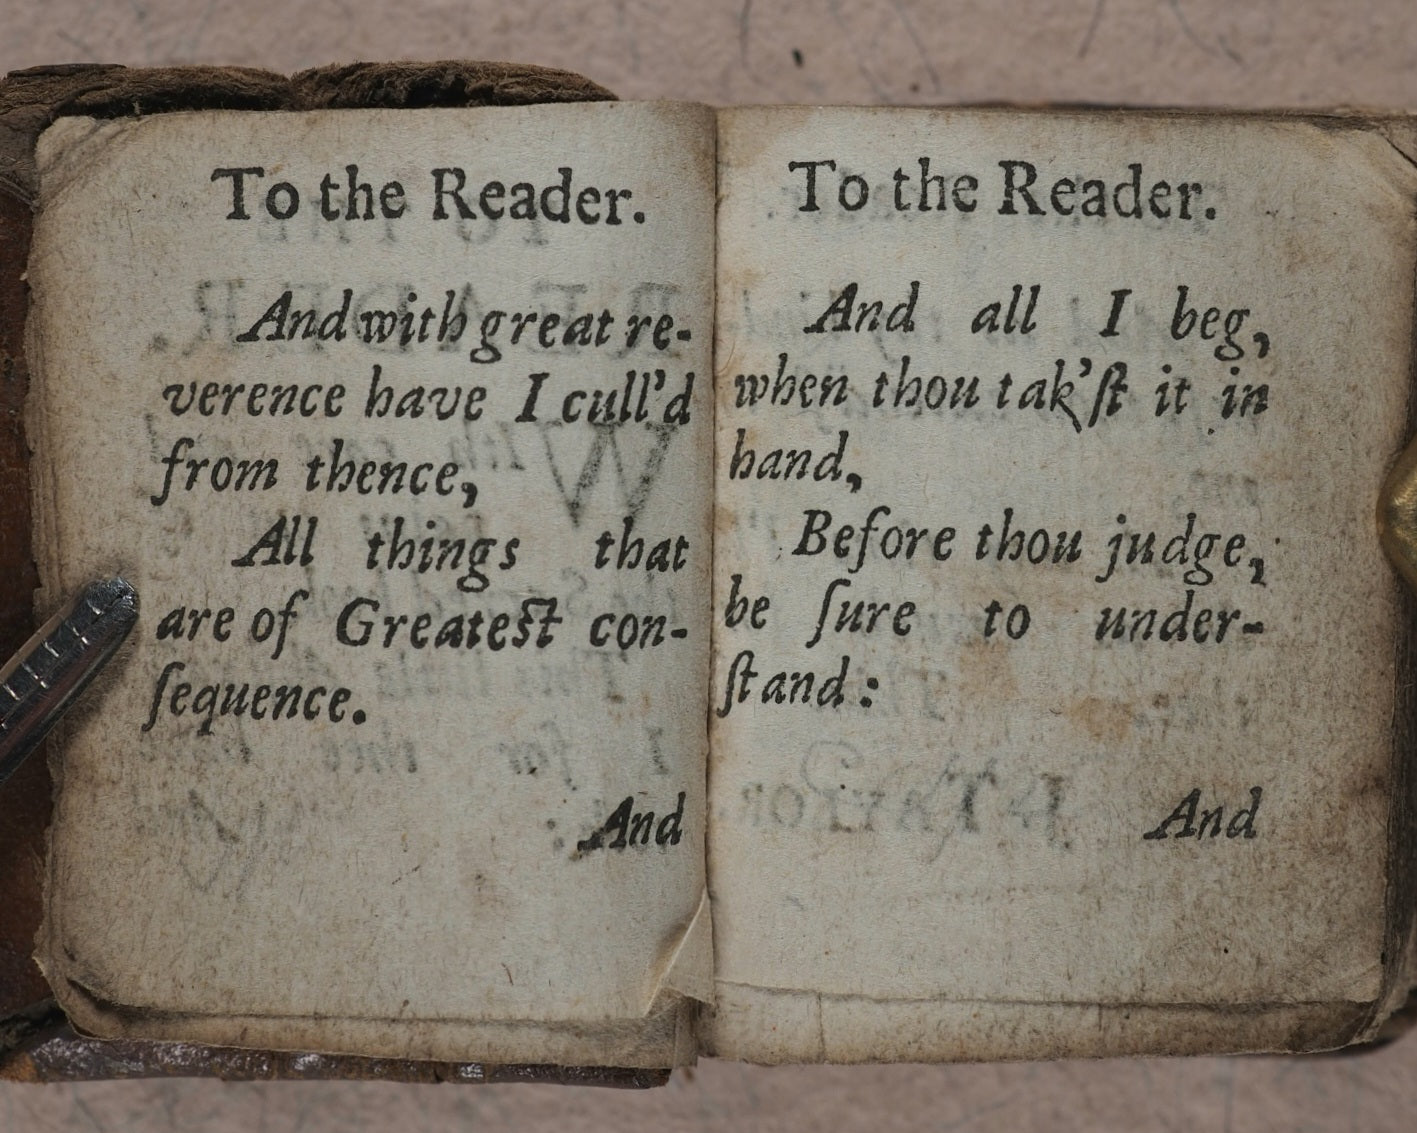 To the Reader.
And with great re-
verence have I cull'd
from thence,
All things that
are of Greateſt con-
ſequence.
And
To the Reader.
And all I beg,
when thou tak'ſt it in
hand,
Before thou judge,
be ſure to under-
ſtand:
And